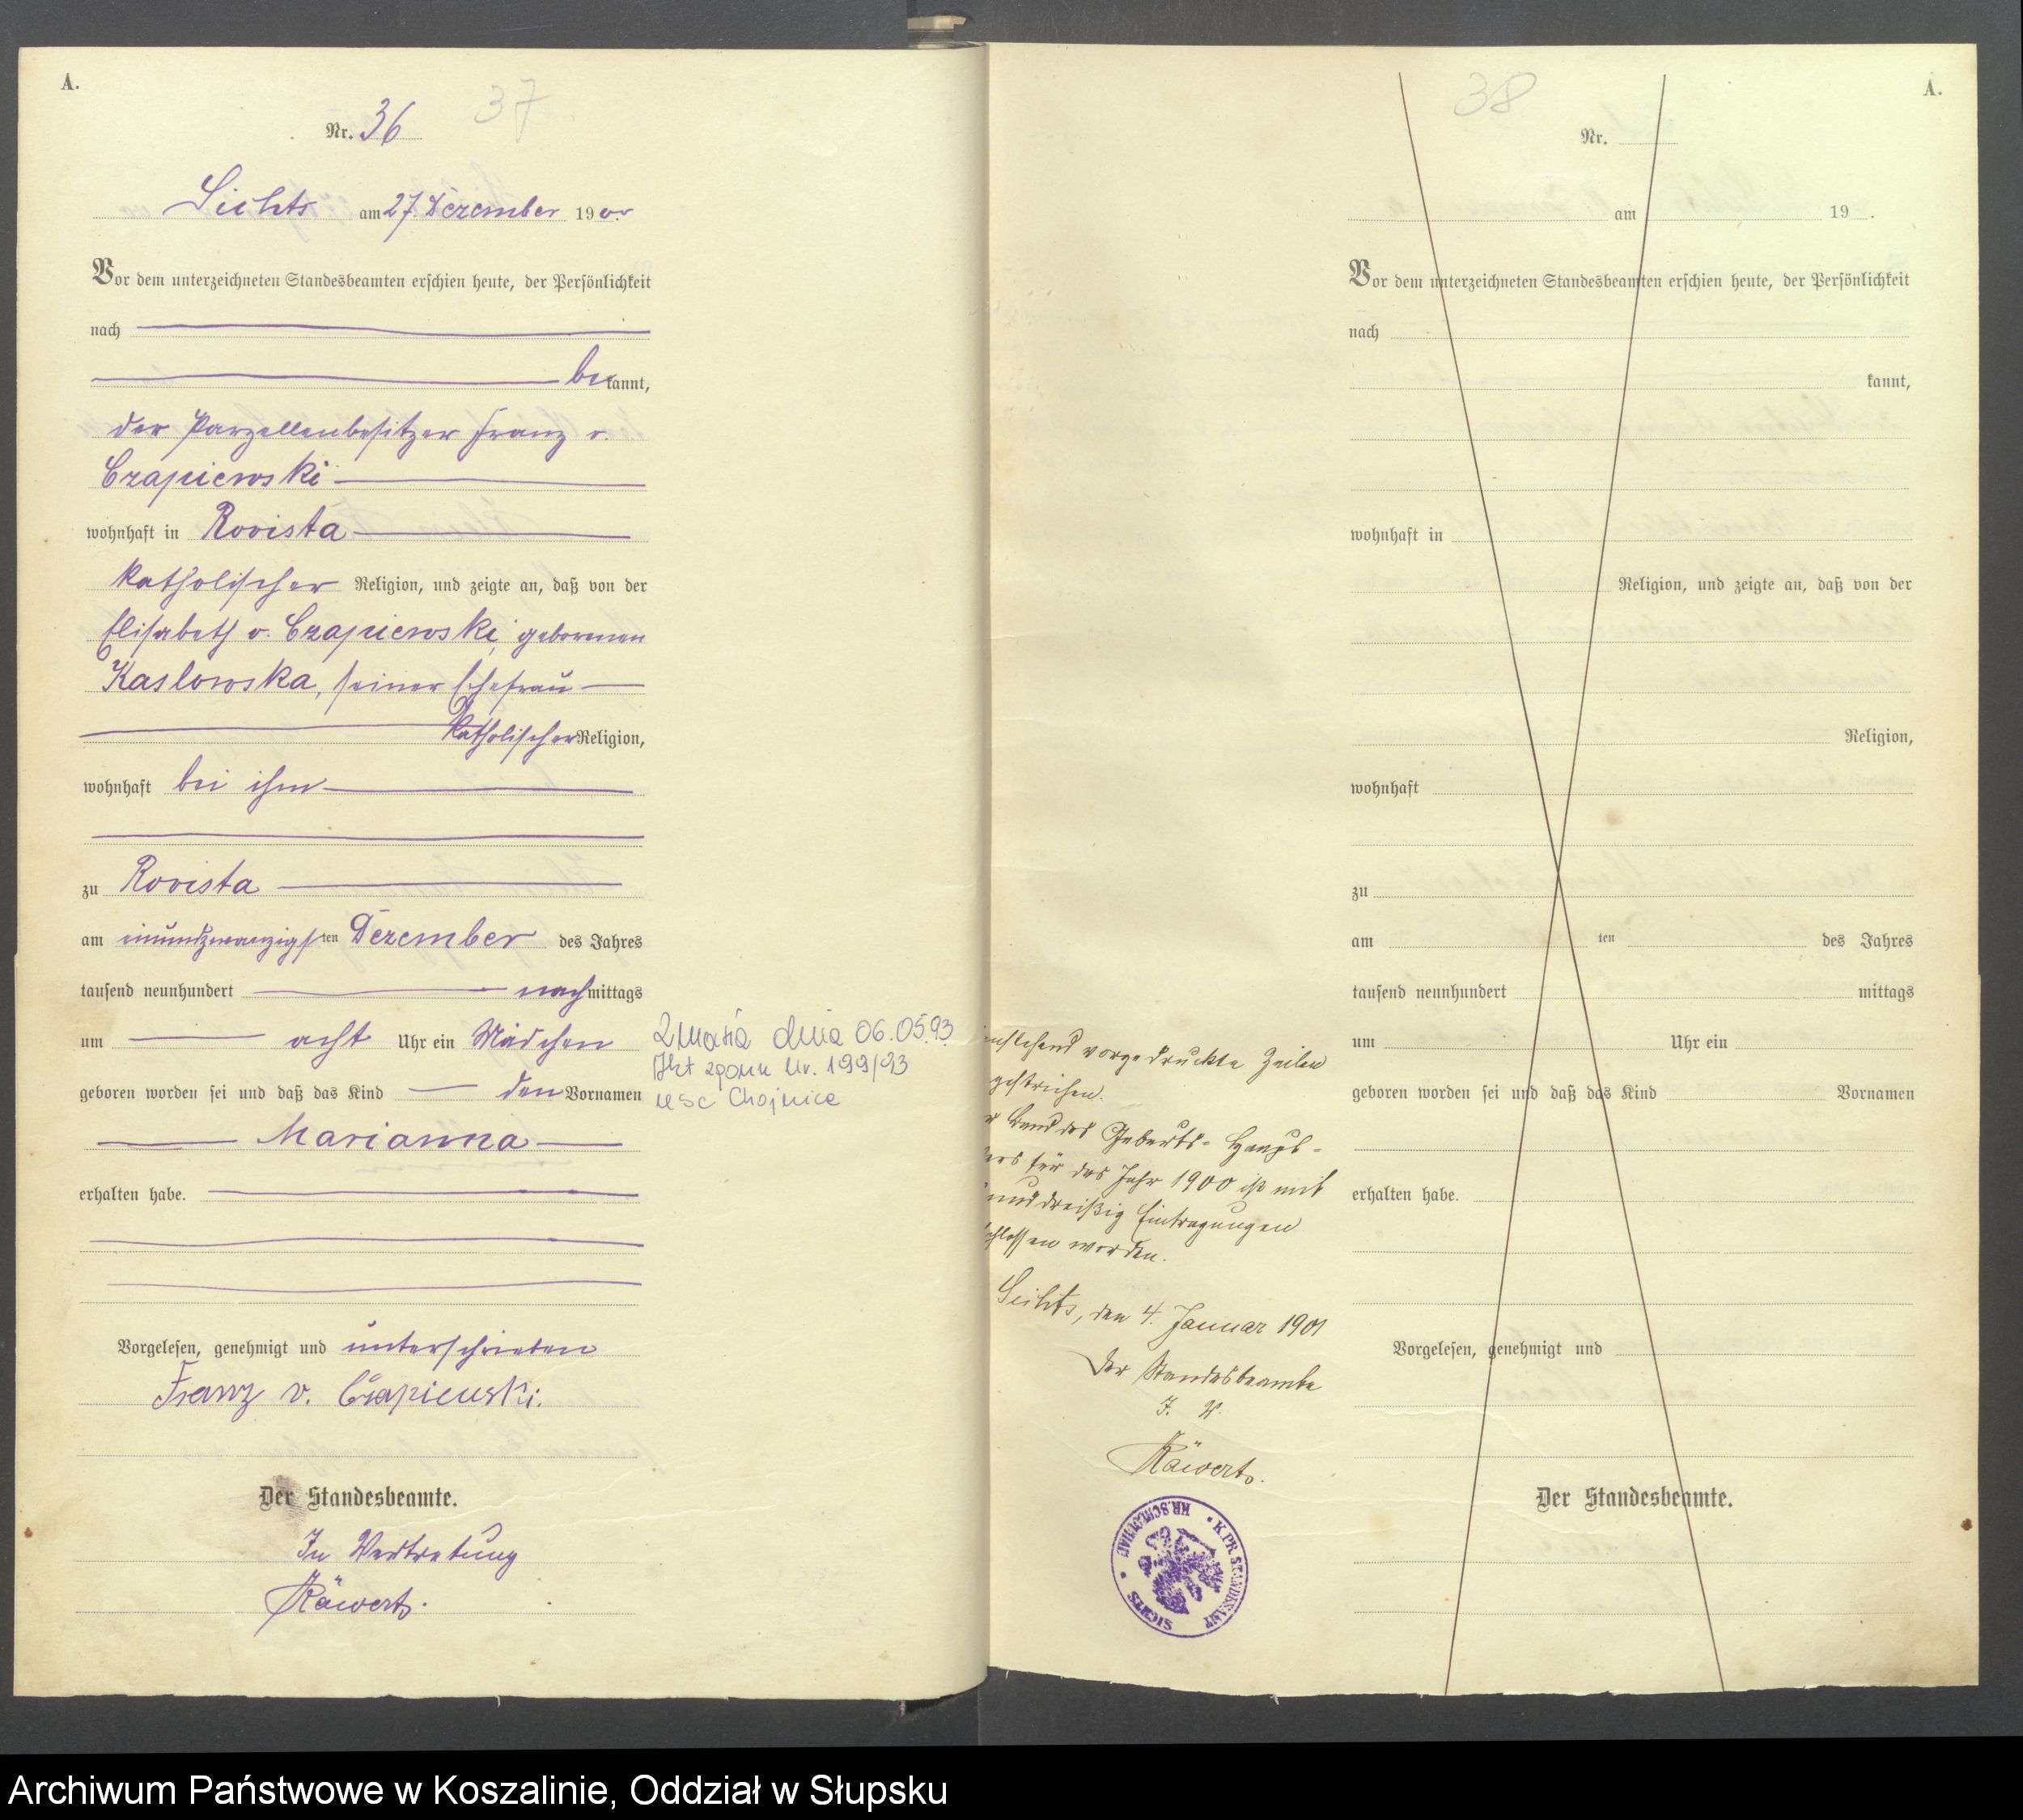 A.
Nr. 36
37
Sichts am 27. Dezember 1900.
Vor dem unterzeichneten Standesbeamten erschien heute, der Persönlichkeit
nach
bekannt,
der Parzellenbesitzer Franz v.
Czapiewski
wohnhaft in Rovista
katholischer Religion, und zeigte an, daß von der
Elisabeth v. Czapiewski, geborenen
Kaslowska, seiner Ehefrau
katholischer Religion,
wohnhaft bei ihm
zu Rovista
am einundzwanzigsten Dezember des Jahres
tausend neunhundert nachmittags
um acht Uhr ein Mädchen
geboren worden sei und daß das Kind den Vornamen
Marianna
erhalten habe.
Vorgelesen, genehmigt und unterschrieben
Franz v. Czapiewski.
Der Standesbeamte.
In Vertretung
Räwerts.
Zmarła dnia 06.05.93
Akt zgonu Nr. 199/93
USC Chojnice
38
A.
Nr.
am 19 .
Vor dem unterzeichneten Standesbeamten erschien heute, der Persönlichkeit
nach
kannt,
wohnhaft in
Religion, und zeigte an, daß von der
Religion,
wohnhaft
zu
am ten des Jahres
tausend neunhundert mittags
um Uhr ein
geboren worden sei und daß das Kind Vornamen
erhalten habe.
Vorgelesen, genehmigt und
Der Standesbeamte.
vorgedruckte Zeilen
gestrichen.
Band des Geburts-Haupt-
für das Jahr 1900 ist mit
unddreißig Eintragungen
worden.
Sichts, den 4. Januar 1901
Der Standesbeamte
I. V.
Räwerts.
K. PR. STANDESAMT SICHTS * KR. SCHLOCHAU *
Archiwum Państwowe w Koszalinie, Oddział w Słupsku